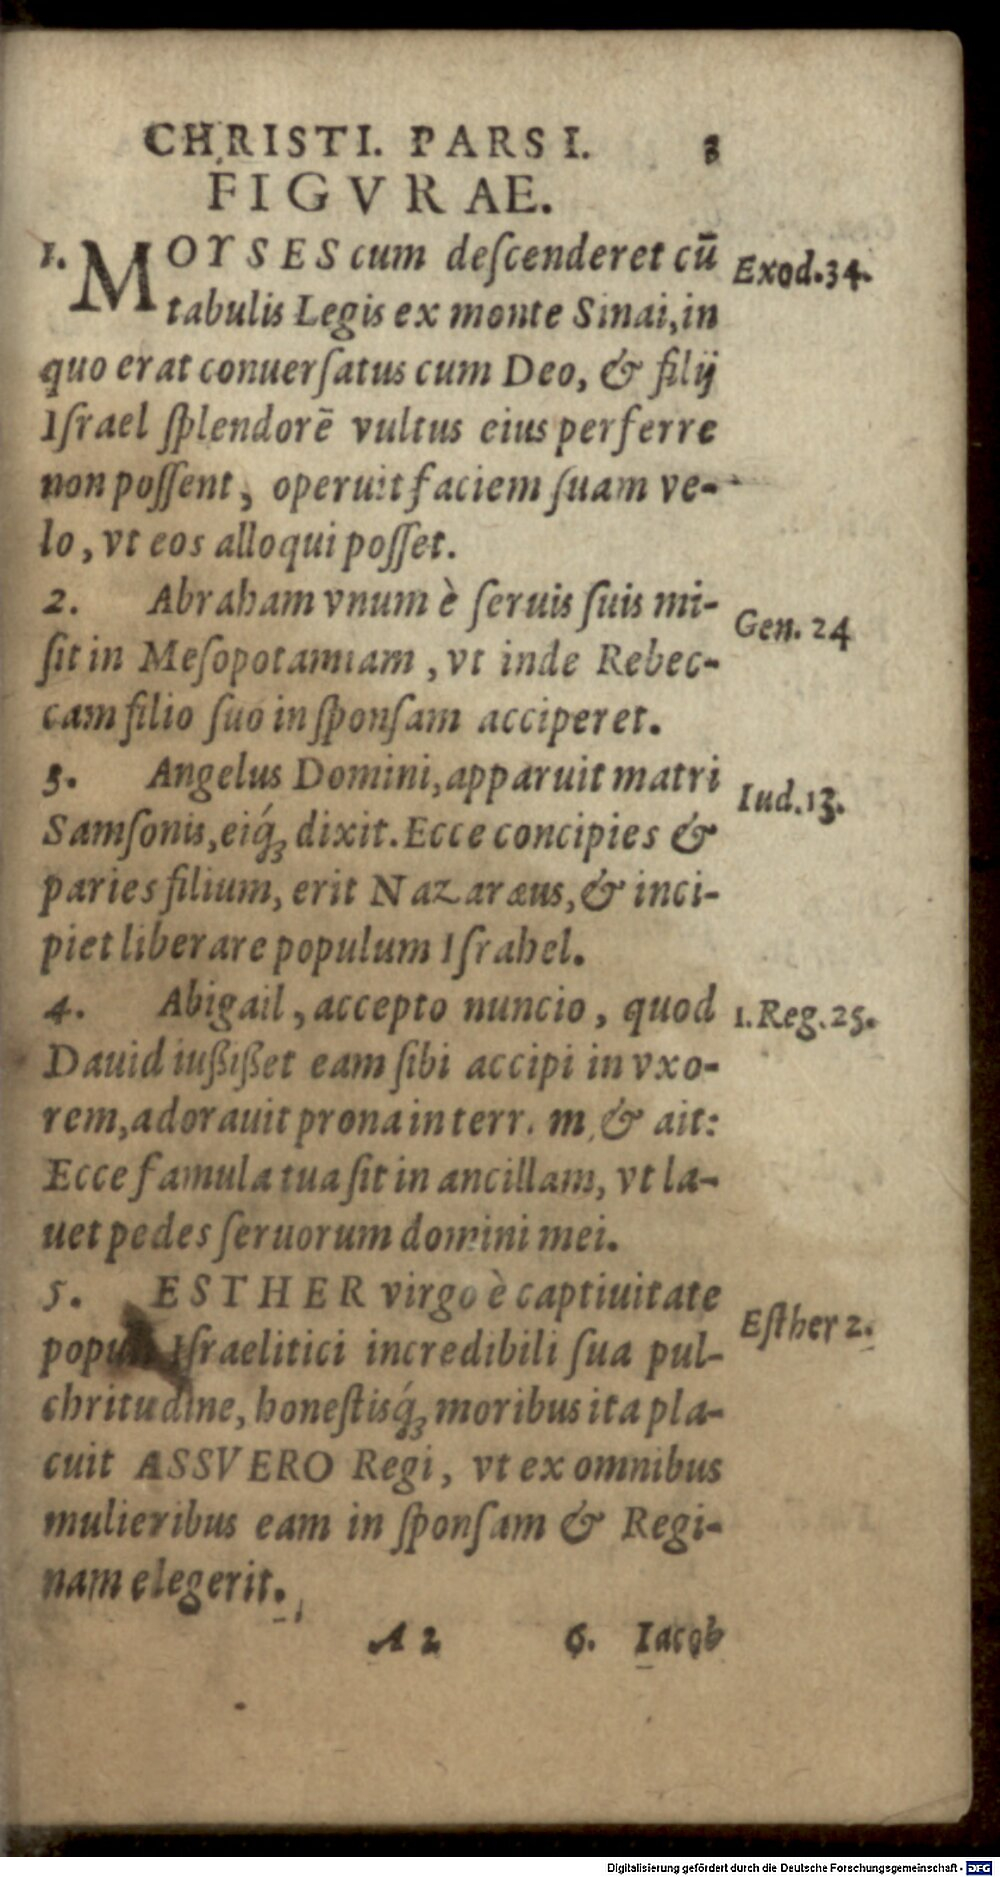 CHRISTI. PARS I. 3
FIGVRAE.
1. MOYSES cum deſcenderet cū
Exod.34.
tabulis Legis ex monte Sinai, in
quo erat conuerſatus cum Deo, & filij
Iſrael ſplendorē vultus eius perferre
non poſſent, operuit faciem ſuam ve-
lo, vt eos alloqui poſſet.
2. Abraham vnum è ſeruis ſuis mi-
Gen. 24
ſit in Meſopotamiam, vt inde Rebec-
cam filio ſuo in ſponſam acciperet.
3. Angelus Domini, apparuit matri
Iud.13.
Samſonis, eiq́ꝫ dixit. Ecce concipies &
paries filium, erit Nazaræus, & inci-
piet liberare populum Iſrahel.
4. Abigail, accepto nuncio, quod
1.Reg.25.
Dauid iußißet eam ſibi accipi in vxo-
rem, adorauit prona in terr. m, & ait:
Ecce famula tua ſit in ancillam, vt la-
uet pedes ſeruorum domini mei.
5. ESTHER virgo è captiuitate
Eſther 2.
popu Iſraelitici incredibili ſua pul-
chritudine, honeſtisq́ꝫ moribus ita pla-
cuit ASSVERO Regi, vt ex omnibus
mulieribus eam in ſponſam & Regi-
nam elegerit.
A 2 6. Iacob
Digitalisierung gefördert durch die Deutsche Forschungsgemeinschaft - DFG